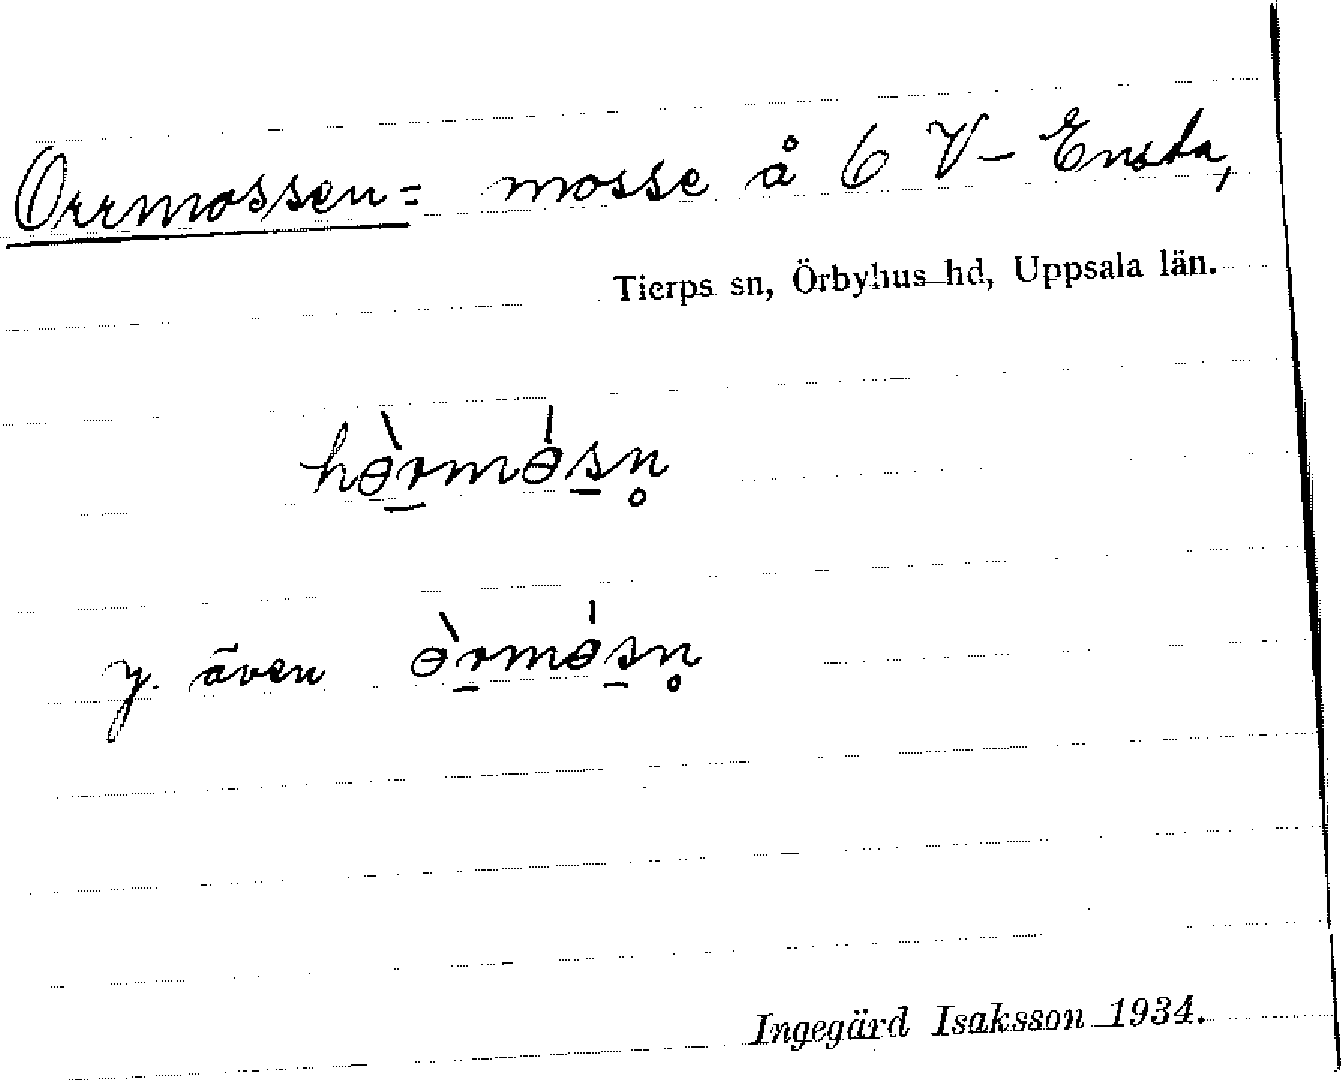 Orrmossen = mosse å 6 V-Ensta,
Tierps sn, Örbyhus hd, Uppsala län.
hɵ̀r̲mɵ́s̲n̥
y. även ɵ̀r̲mɵ́s̲n̥
Ingegärd Isaksson 1934.